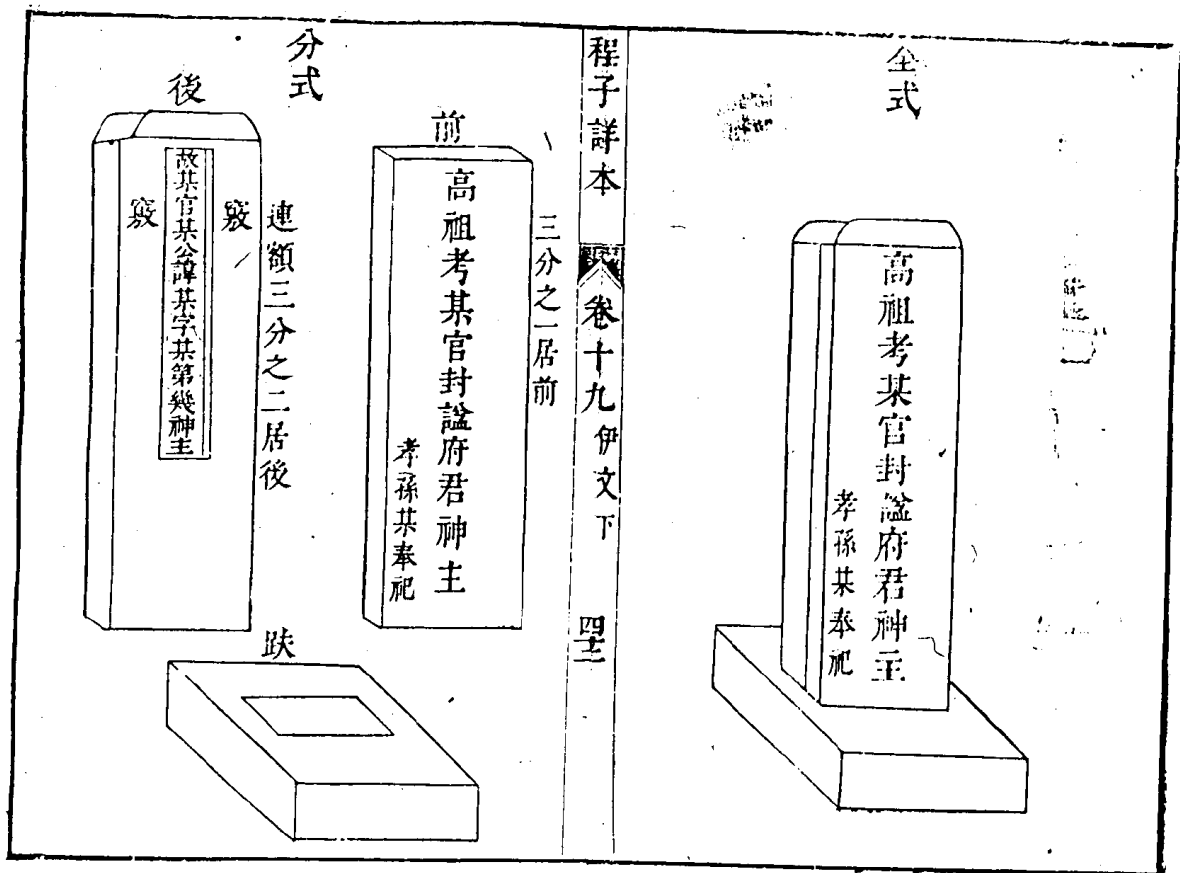 全式
高祖考某官封諡府君神主
孝孫某奉祀
程子詳本
卷十九
伊文下
四十二
分式
前
三分之一居前
高祖考某官封諡府君神主
孝孫某奉祀
後
連額三分之二居後
竅
故某官某公諱某字某第幾神主
竅
趺